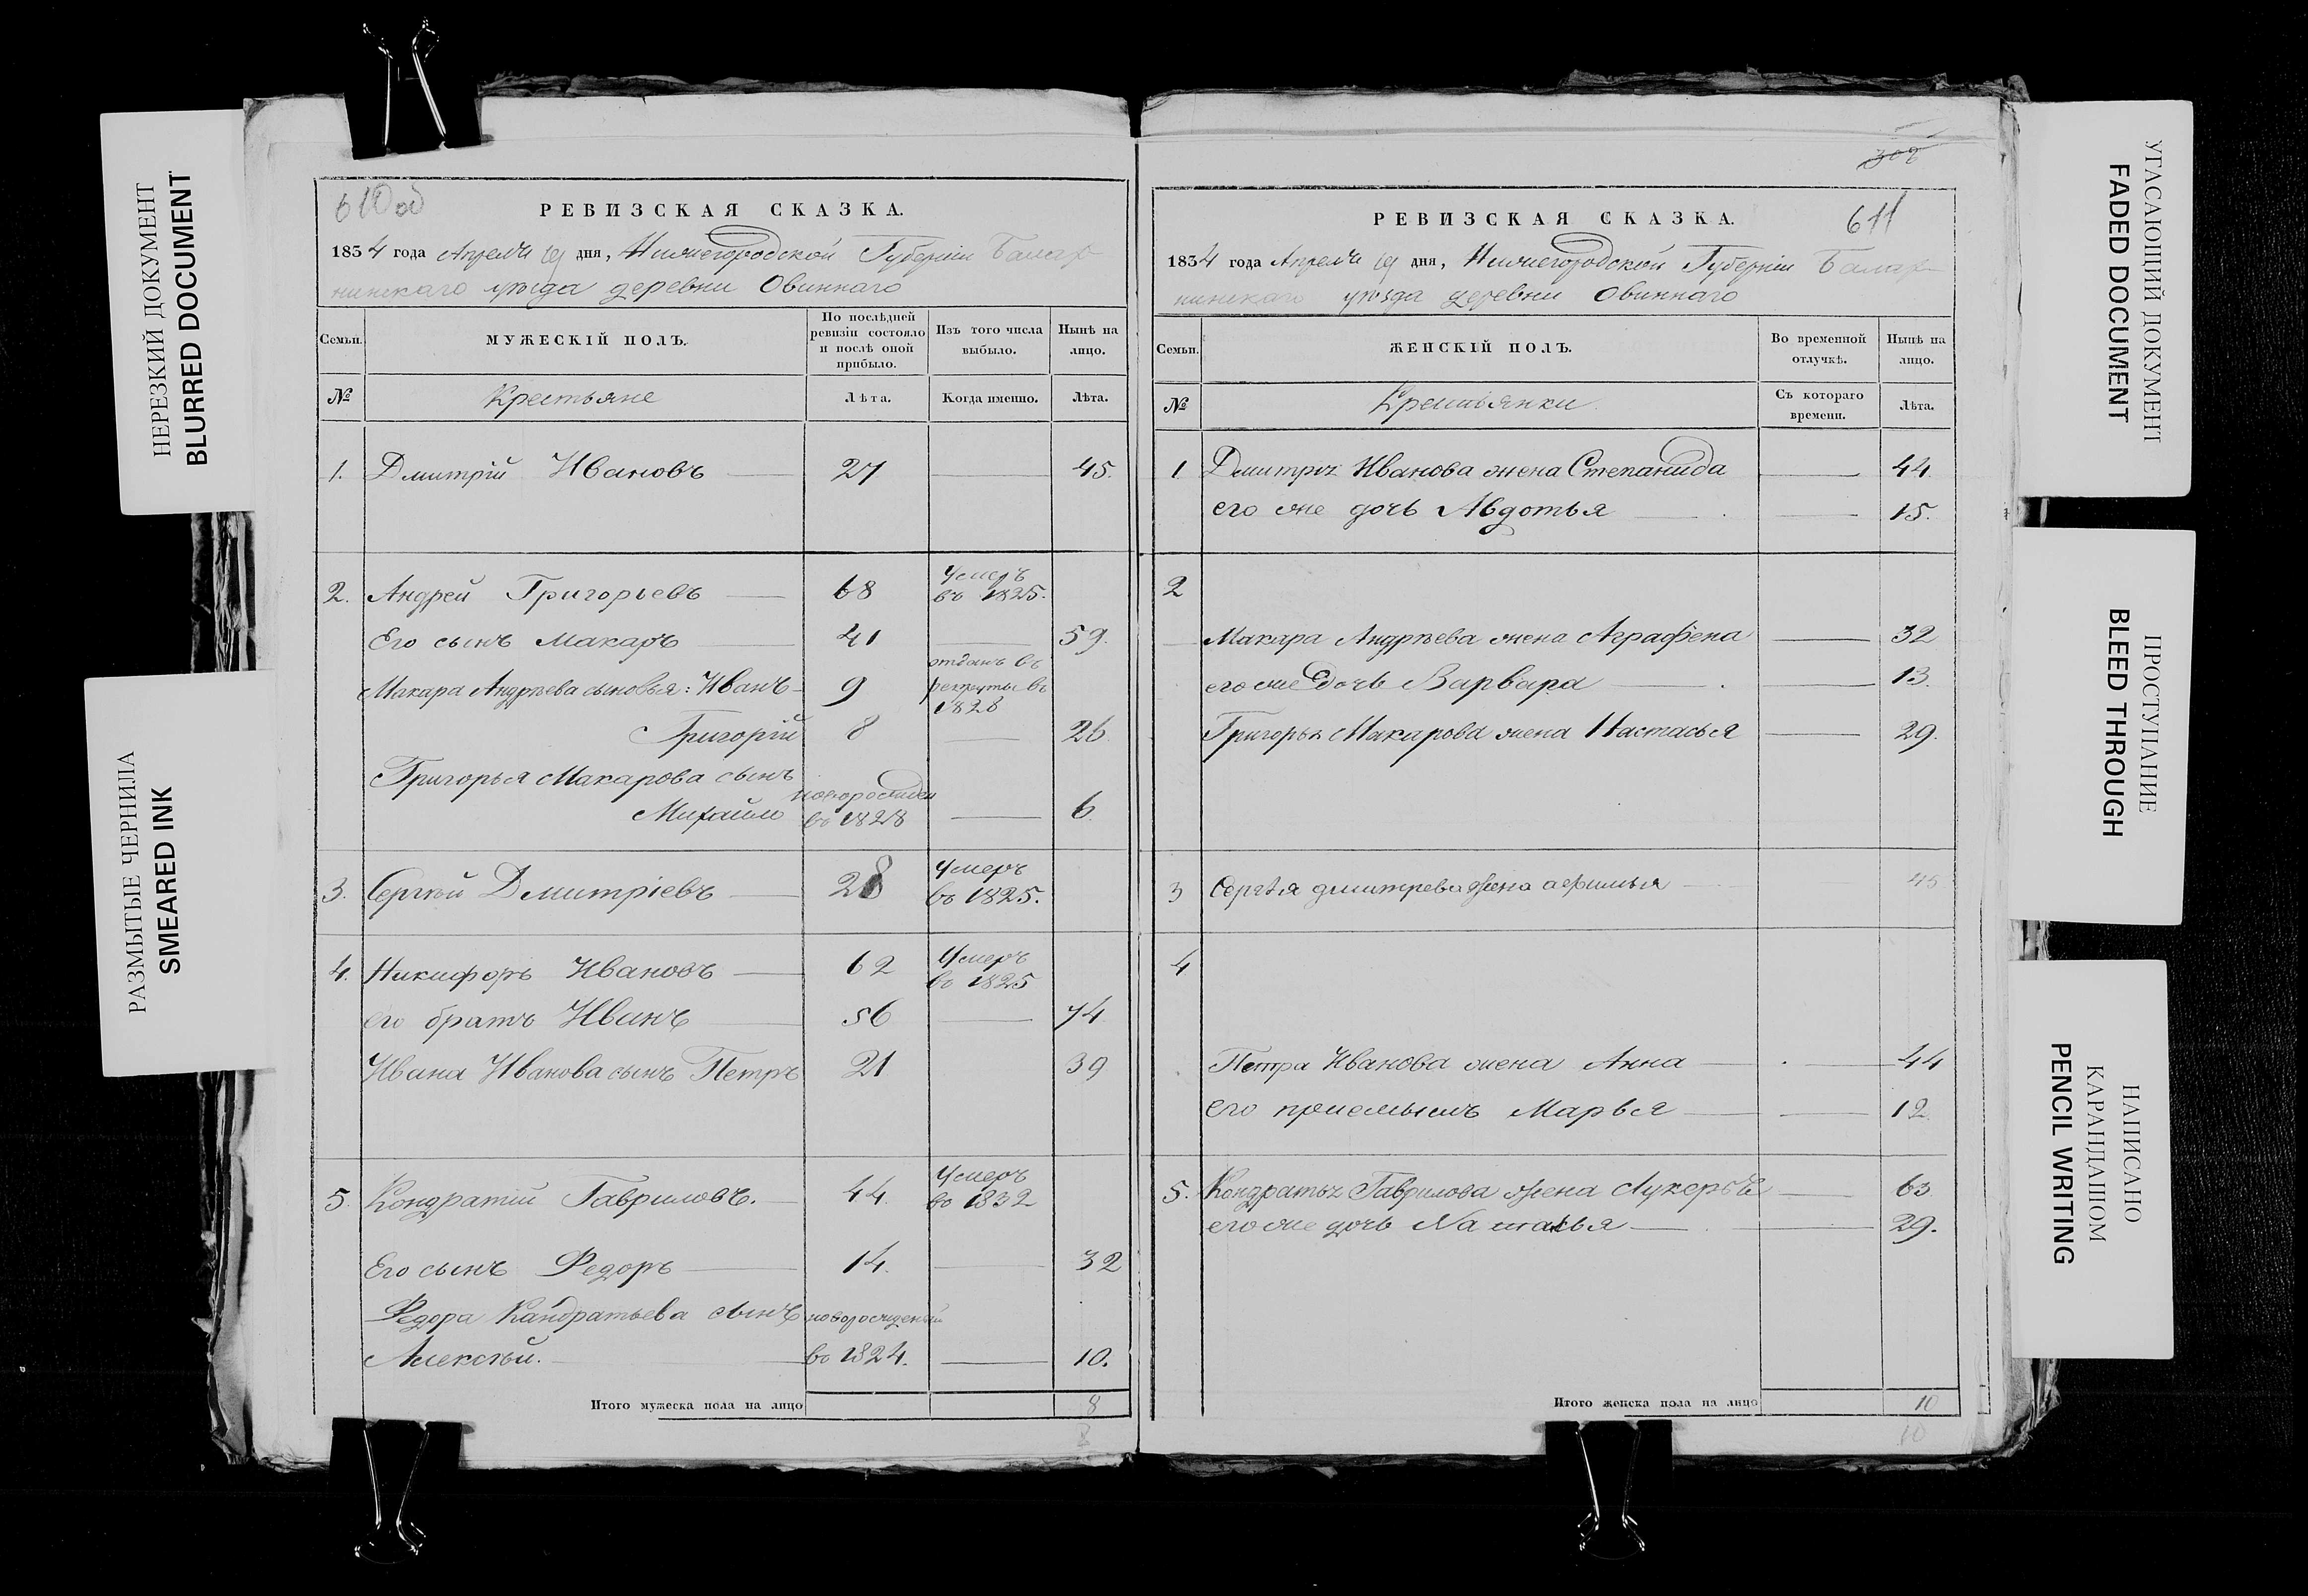 НЕРЕЗКИЙ ДОКУМЕНТ
BLURRED DOCUMENT
РАЗМЫТЫЕ ЧЕРНИЛА
SMEARED INK
610 об
РЕВИЗСКАЯ СКАЗКА.
1834 года Апреля дня, Нижегородской Губерніи Балах-
нинскаго уѣзда деревни Овиннаго
Семьи.
МУЖЕСКІЙ ПОЛЪ.
По послѣдней ревизіи состояло и послѣ оной прибыло.
Изъ того числа выбыло.
Нынѣ на лицо.
№ Крестьяне Лѣта. Когда именно. Лѣта.
1. Дмитрій Ивановъ 27 45.
2. Андрей Григорьевъ 68 Умеръ въ 1825.
Его сынъ Макаръ 41 59.
Макара Андрѣева сыновья: Иванъ 9 отданъ въ рекруты въ 1828
Григорій 8 26
Григорья Макарова сынъ
Михайло новорожден въ 1828 6
3. Сергѣй Дмитріевъ 28 Умеръ въ 1825.
4. Никифоръ Ивановъ 62 Умеръ въ 1825
его братъ Иванъ 56 74
Ивана Иванова сынъ Петръ 21 39
5 Кондратій Гавриловъ. 44 Умеръ во 1832
Его сынъ Федоръ 14. 32
Федора Кандратьева сынъ новорожденный
Алексѣй. во 1824. 10.
Итого мужеска пола на лицо 8
8
302
РЕВИЗСКАЯ СКАЗКА.
611
1834 года Апреля дня, Нижегородской Губерніи Балах-
нинскаго уѣзда деревни Овиннаго
Семьи.
ЖЕНСКІЙ ПОЛЪ.
Во временной отлучкѣ.
Нынѣ на лицо.
№ Крестьянки Съ котораго времени. Лѣта.
1 Дмитрія Иванова жена Степанида 44
его же дочь Авдотья 15.
2
Макара Андрѣева жена Аграфена 32
его же дочь Варвара 13.
Григорья Макарова жена Настасья 29.
3 Сергѣя дмитрева жена афимья 45
4
Петра Иванова жена Анна 44
его приемышъ Марья 12
5. Кондратья Гаврилова жена Лукерья 63
его же дочь Наталья 29.
Итого женска пола на лицо 10
10
УГАСАЮЩИЙ ДОКУМЕНТ
FADED DOCUMENT
ПРОСТУПАНИЕ
BLEED THROUGH
НАПИСАНО
КАРАНДАШОМ
PENCIL WRITING